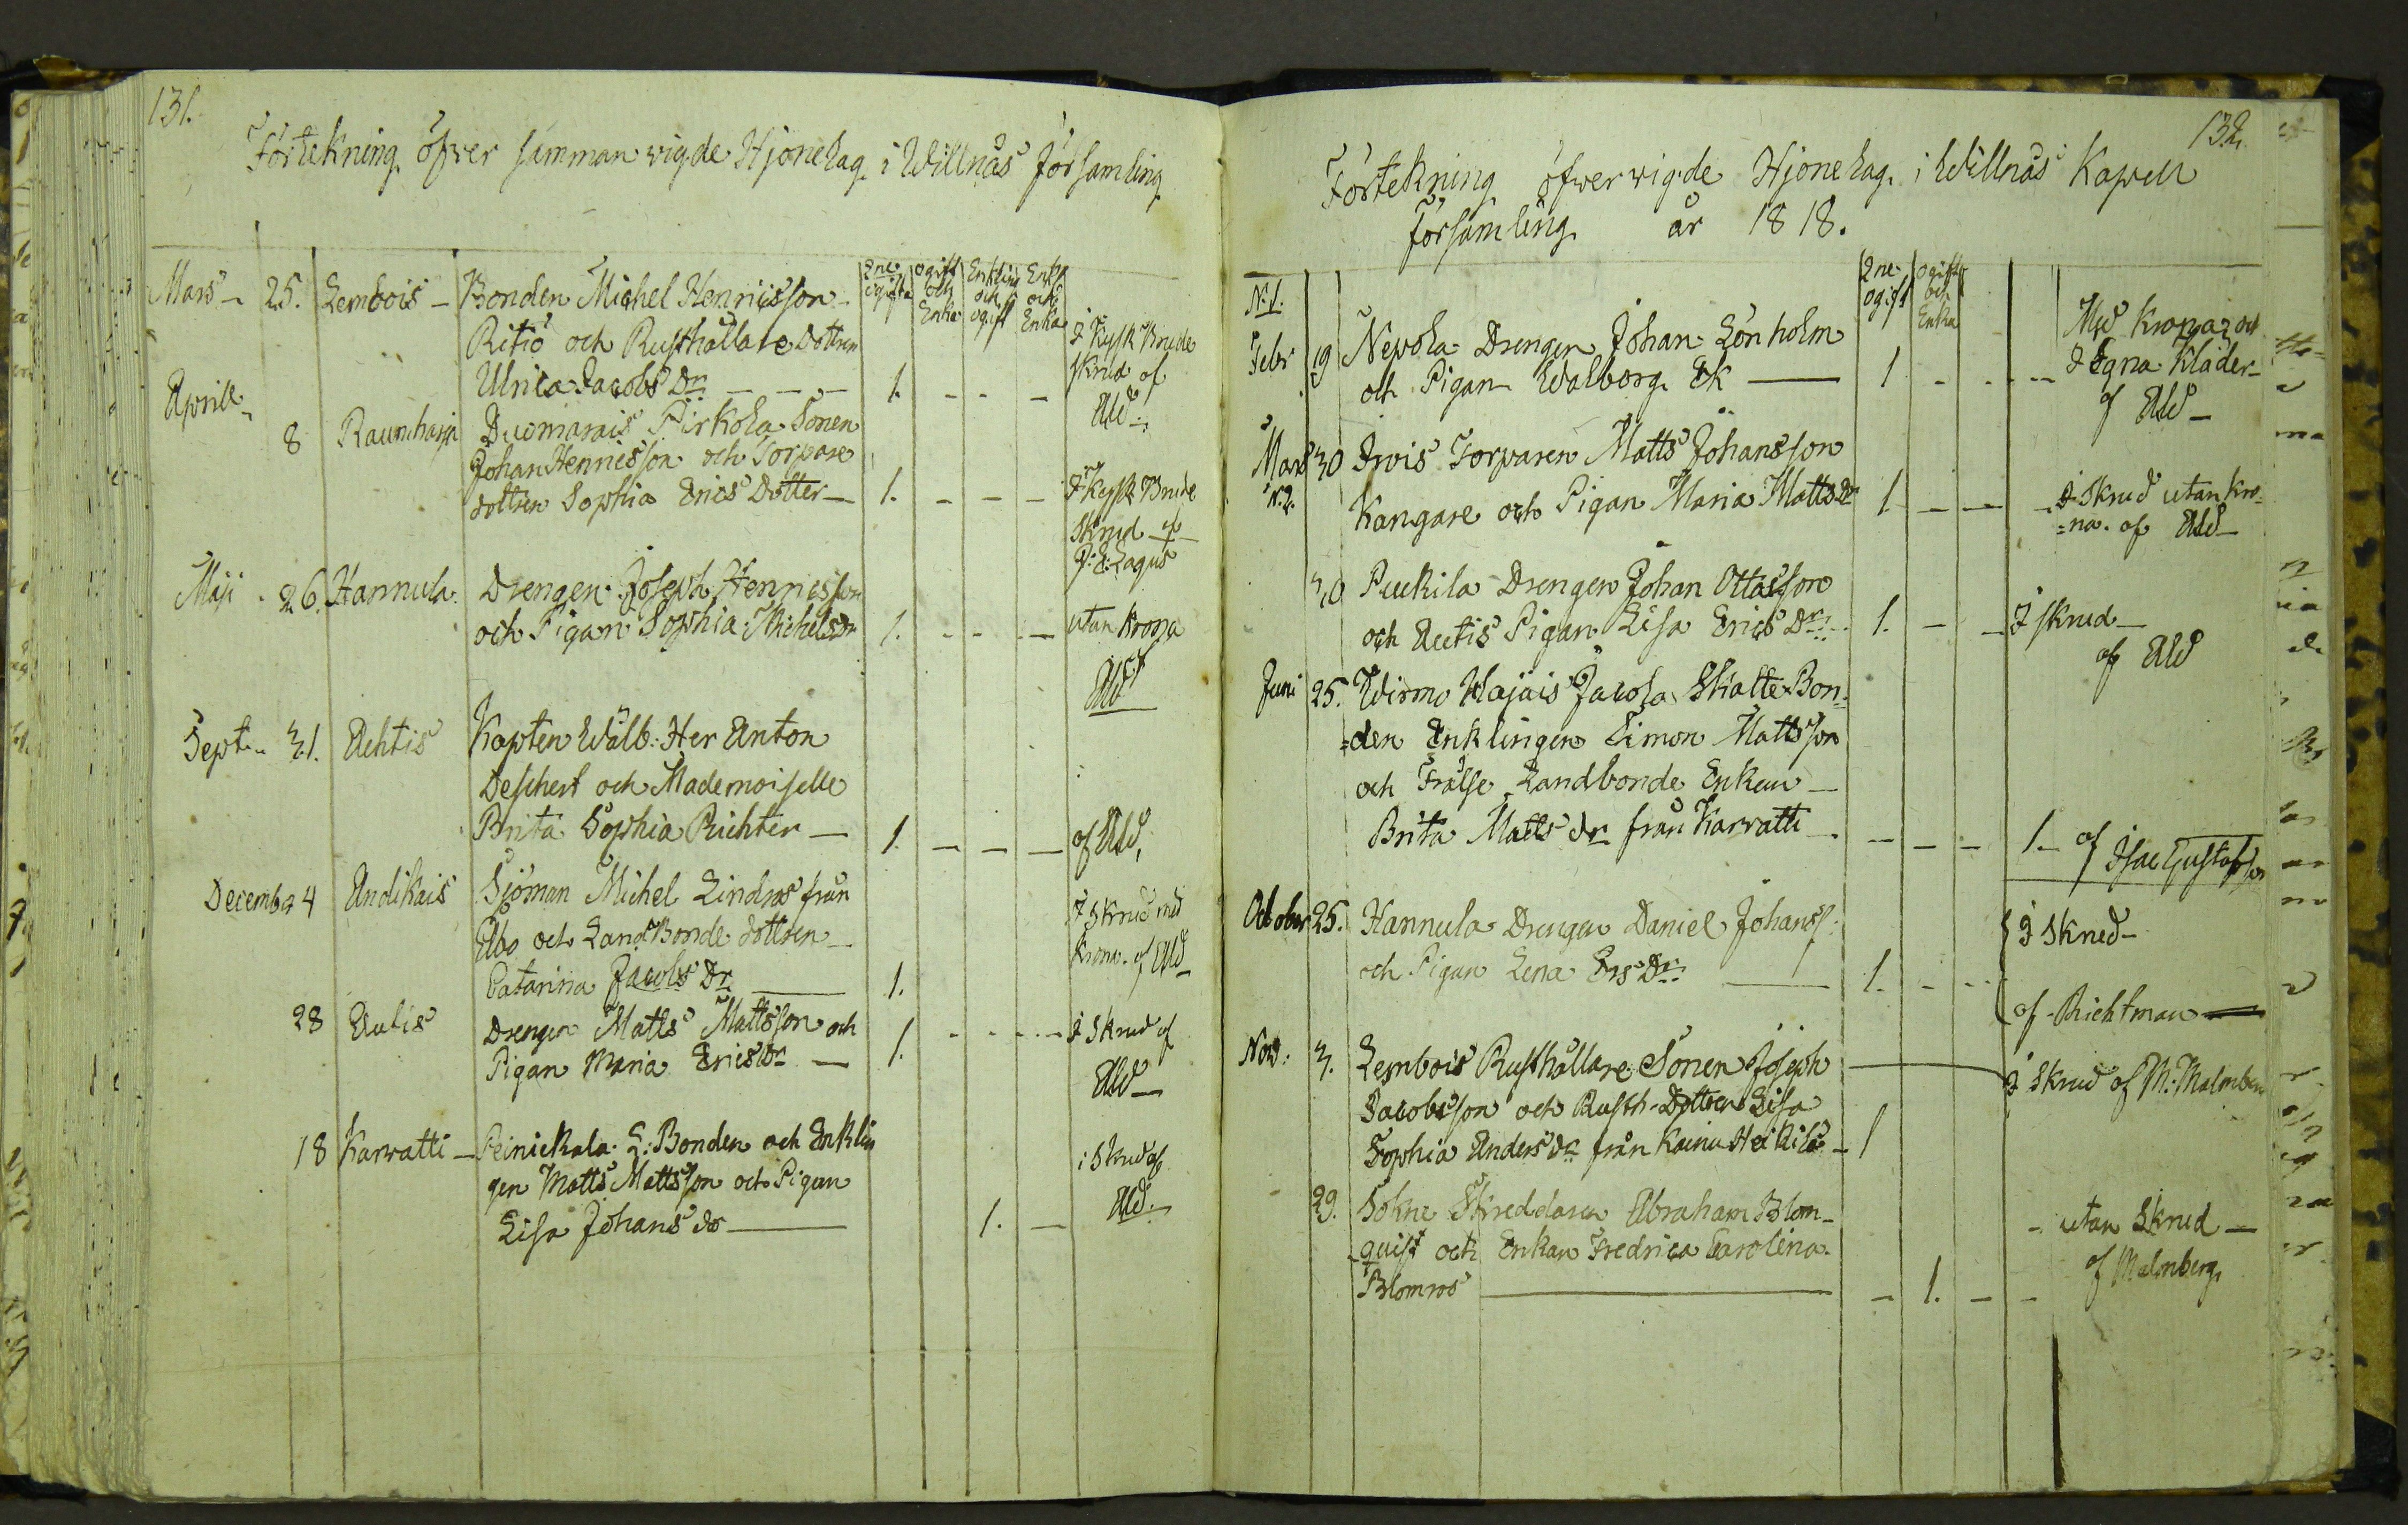 131.
Förtekning öfver samman vigde Hjonelag i Willnäs församling
2ne ogifta
ogift och Enka
Enkling och ogift
Enkl och Enka
Mars 25. Lembois Bonden Michel Henricsson
Ritiö och Rusthållare Dottren
Ulrica Jacobs Dr 1. I Kysk Brude skrud af AW
Aprill 8 Raumharju Duomarais Pirkola Sonen
Johan Henricsson och Torpare
dottren Sophia Erics Dotter 1. I Kysk Brude Skrud af J: E: Lagus
Maji 26. Hannula Drengen Joseph Henricsson
och Pigan Sophia Michelsdr 1. utan krona AW
Sept. 31. Ahtis Kapten Wälb: Her Anton
Deschert och Mademoiselle
Brita Sophia Richter 1. af AW,
Decemb. 4 Andikais Sjöman Michel Lindros från
Åbo och Land Bonde dottren
Catarina Jacobs Dr 1. I Skrud med krona af AW
28 Autis Drengen Matts Mattsson och
Pigan Maria Ericsdr 1. I Skrud af AW
18 Karvatti Peinickala L: Bonden och Enklin
gen Matts Mattsson och Pigan
Lisa Johans dr 1. i Skrud af AW.
132.
Förtekning öfwer vigde Hjonelag i Willnäs Kapell
församling år 1818.
2ne ogift
ogift och Enka
N:1.
Febr 19 Nepola Drengen Johan Lönholm
och Pigan Walborg Ek 1 Med krona och
I Egna Kläder
af AW
Mars 30 Irvis Torparen Matts Johansson
N:2. Kangare och Pigan Maria Mattsdr 1 I Skrud utan kro=
=na. af AW
30 Puckila Drengen Johan Ottasson
och Autis Pigan Lisa Erics Dr 1. I skrud
af AW
Juni 25. Wirmo Hajais Jacola Skatte Bon=
=den Enklingen Simon Mattsson
och Frälse Landbonde Enkan
Brita Matts dr från Karvatti 1. af Isac Gustafsson
October 25. Hannula Drengen Daniel Johanss:
och Pigan Lena Ers Dr 1. I Skrud
af Richtman
Nov: 3. Lembois Rusthållare Sonen Joseph I Skrud af M: Malmberg
Jacobsson och Rusth. Dottren Lisa
Sophia Anders dr från Kainu Heikilä 1
29. Sokne Skreddaren Abraham Blom-
quist och Enkan Fredrica Carolina
Blomros 1. utan Skrud
af Malmberg